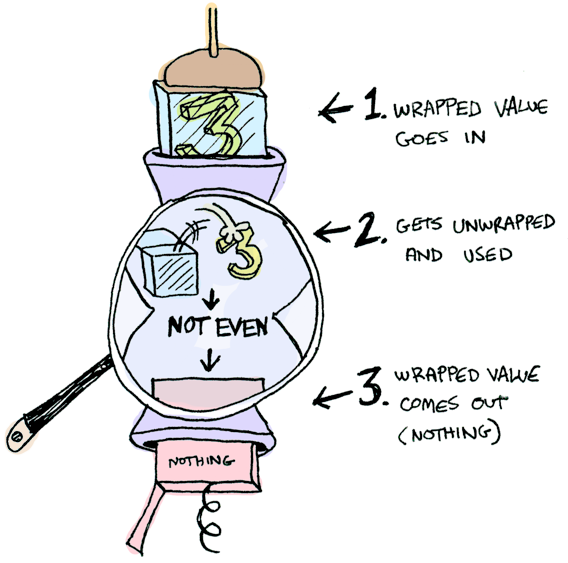 3
← 1. WRAPPED VALUE
GOES IN
3
← 2. GETS UNWRAPPED
AND USED
↓
NOT EVEN
↓
← 3. WRAPPED VALUE
COMES OUT
(NOTHING)
NOTHING